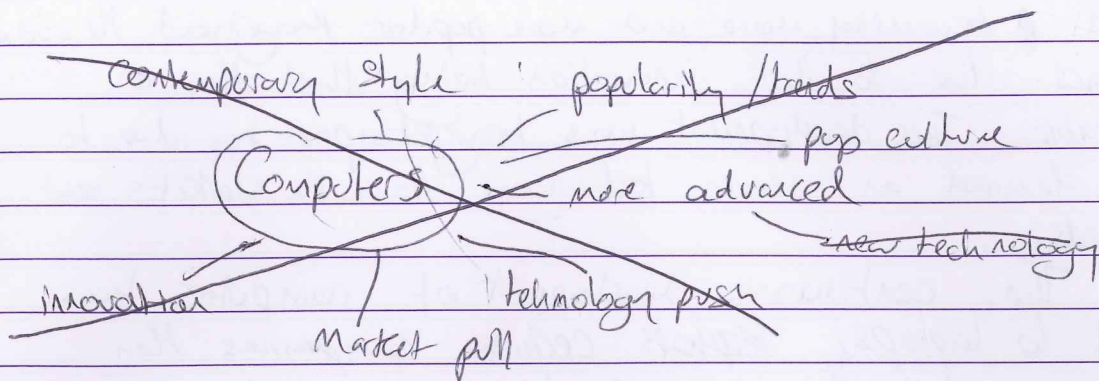 contemporary style popularity / trends
pop culture
Computers more advanced
new technology
innovation technology push
Market pull